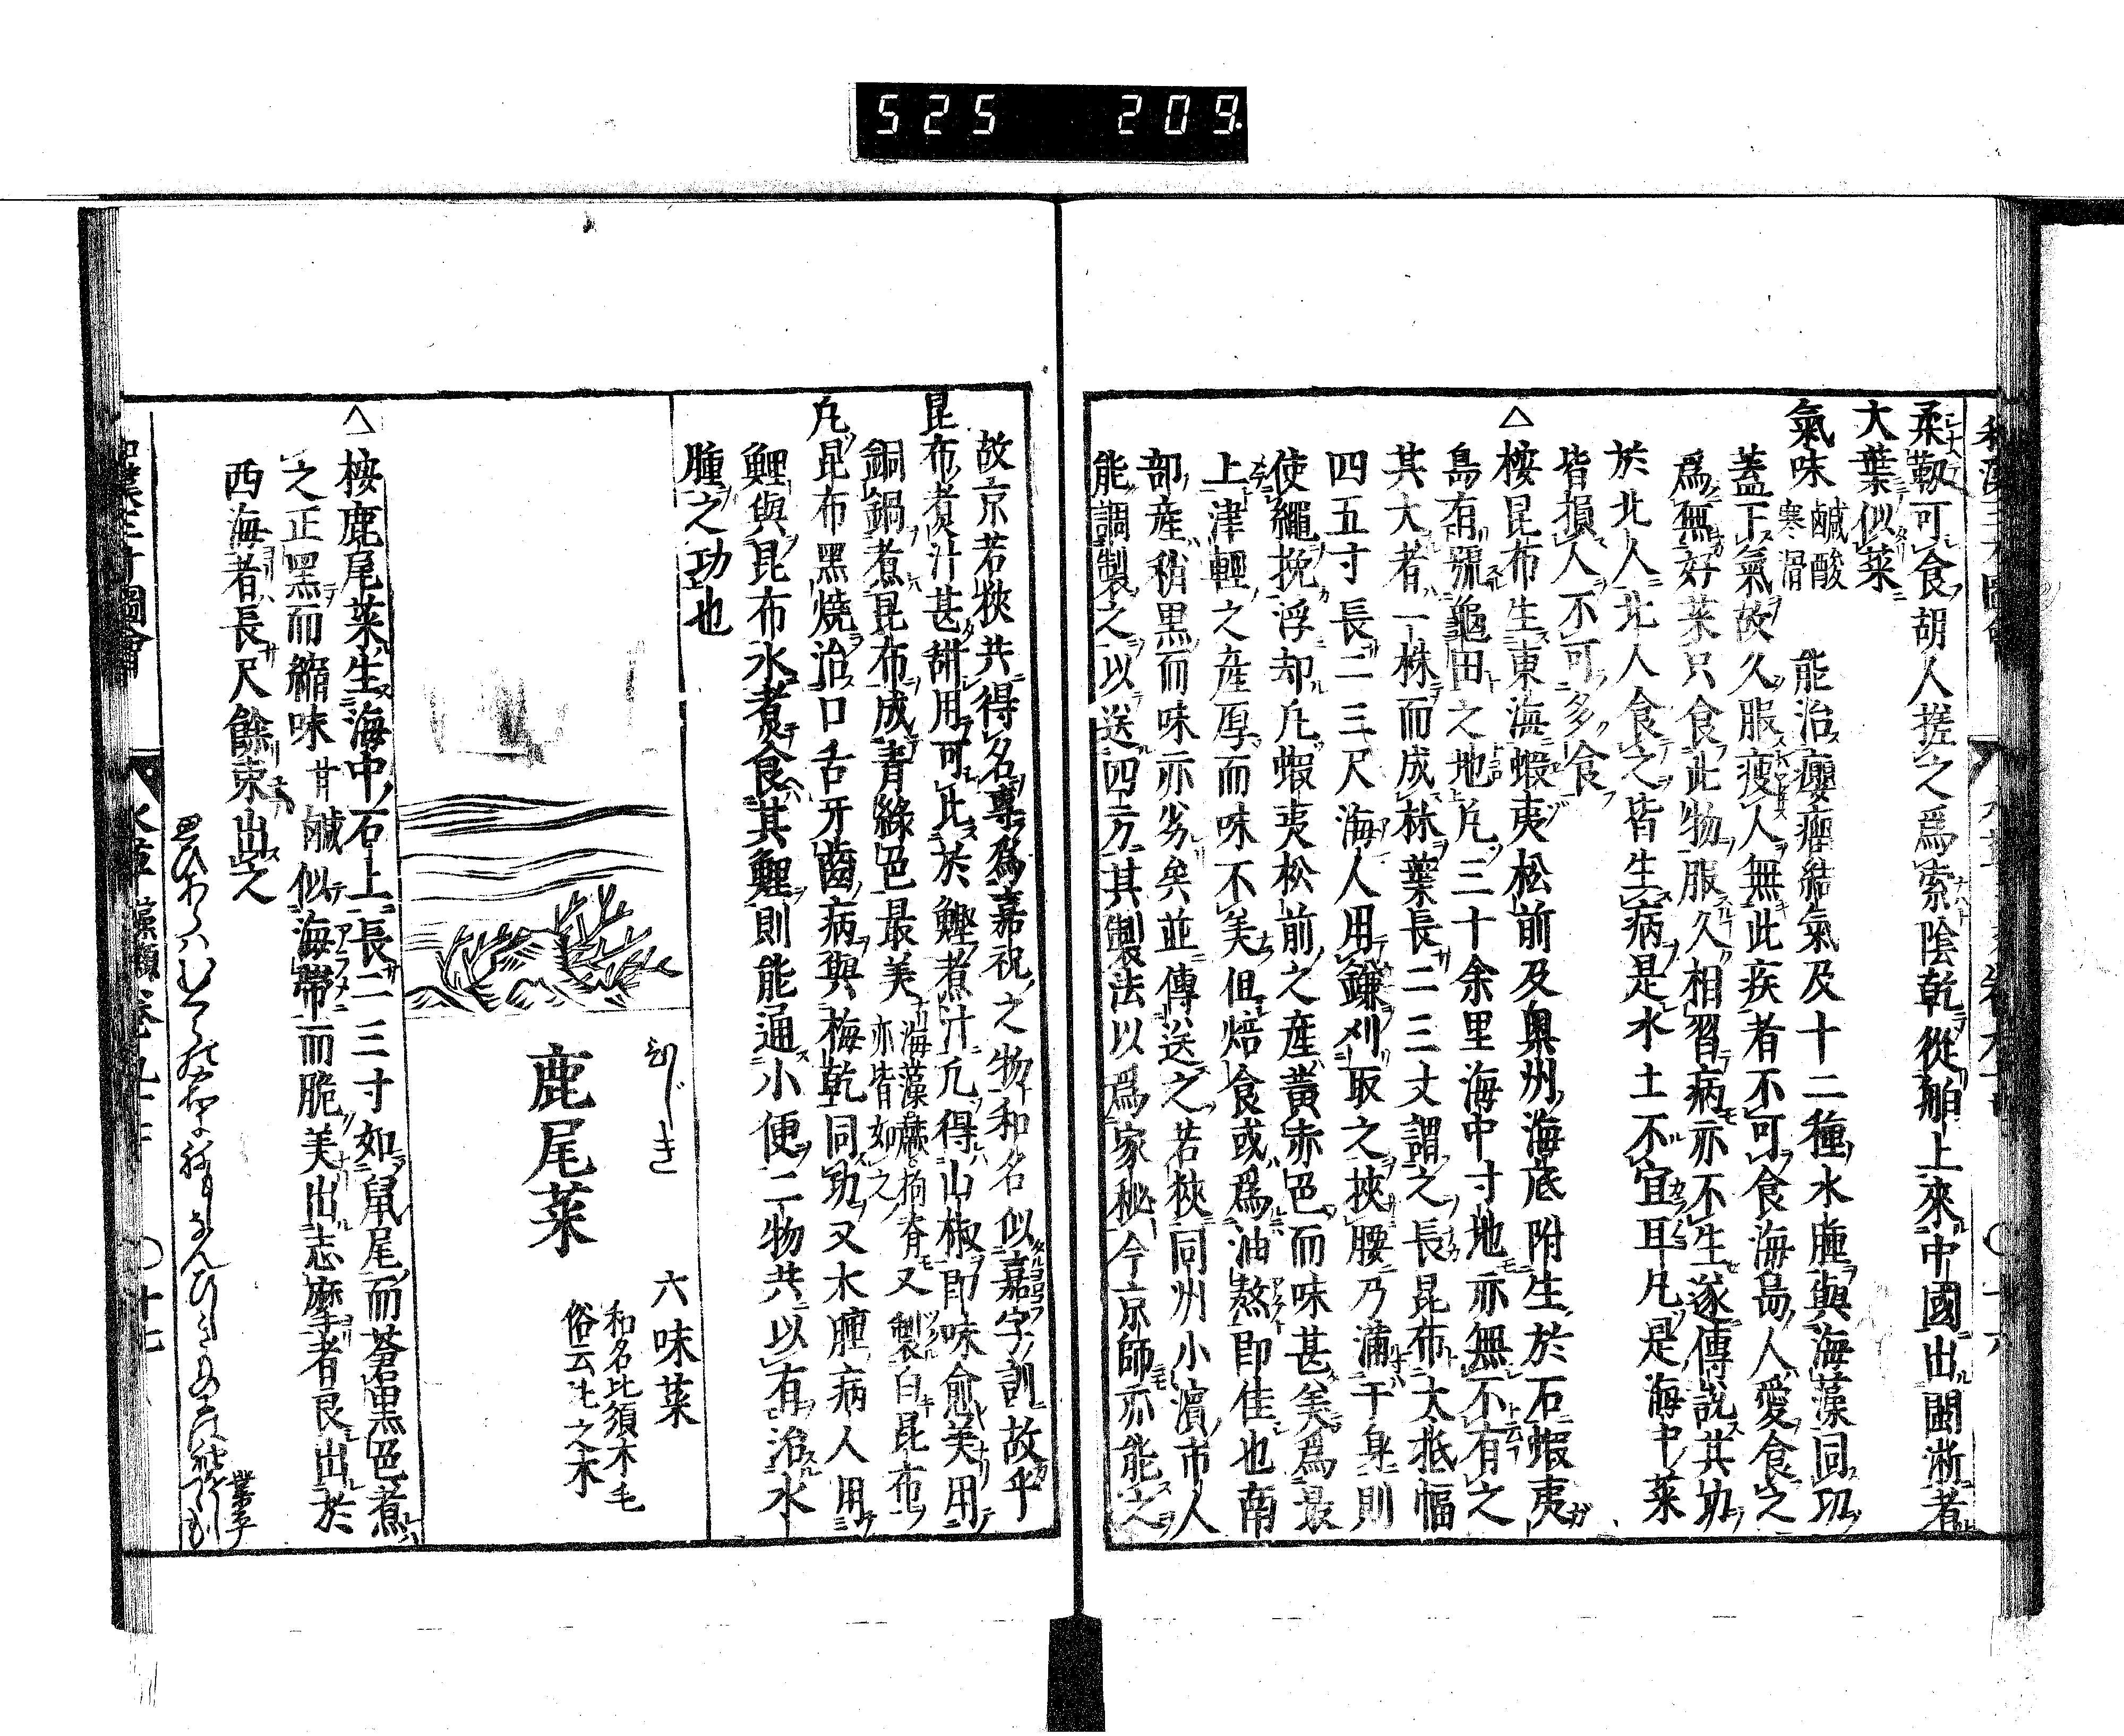 525 209
柔靱可食胡人搓之爲索陰乾從舶上來中國出閩浙者
大葉似菜
氣味 鹹酸寒滑 能治癭瘤結氣及十二種水腫與海藻同功
蓋下氣故久服瘦人無此疾者不可食海島人愛食之
爲無好菜只食此物服久相習病亦不生遂傳說其功
於北人北人食之皆生病是水土不宜耳凡是海中菜
皆損人不可多食
△桉昆布生東海蝦夷松前及奧州海底附生於石蝦夷
島有號龜田之地凡三十余里海中寸地亦無不有之
其大者一株而成林葉長二三丈謂之長昆布大抵幅
四五寸長二三尺海人用鎌刈取之挾腰乃滿于身則
使繩挽浮却凡蝦夷松前之產黃赤色而味甚美爲最
上津輕之產厚而味不美但焙食或爲油熬即佳也南
部產稍黑而味亦劣矣並傳送之若狹同州小濵市人
能調製之以送四方其製法以爲家秘今京師亦能之
故京若狹共得名專爲嘉祝之物和名似嘉字訓故乎
昆布煮汁甚甜用可比於鰹煮汁凡得山椒即味愈美用
銅鍋煮昆布成青綠色最美 海藻蕨狗脊亦皆如之 又製白昆布
凡昆布黑燒治口舌牙齒病與梅乾同功又水腫病人用
鯉與昆布水煮食其鯉則能通小便二物共以有治水
腫之功也
ひじき
鹿尾菜
六味菜
和名比須木毛
俗云比之木
△桉鹿尾菜生海中石上長二三寸如鼠尾而蒼黒色煮
之正黑而縮味甘鹹似海帶而脆美出志摩者良出於
西海者長尺餘束出之
業平